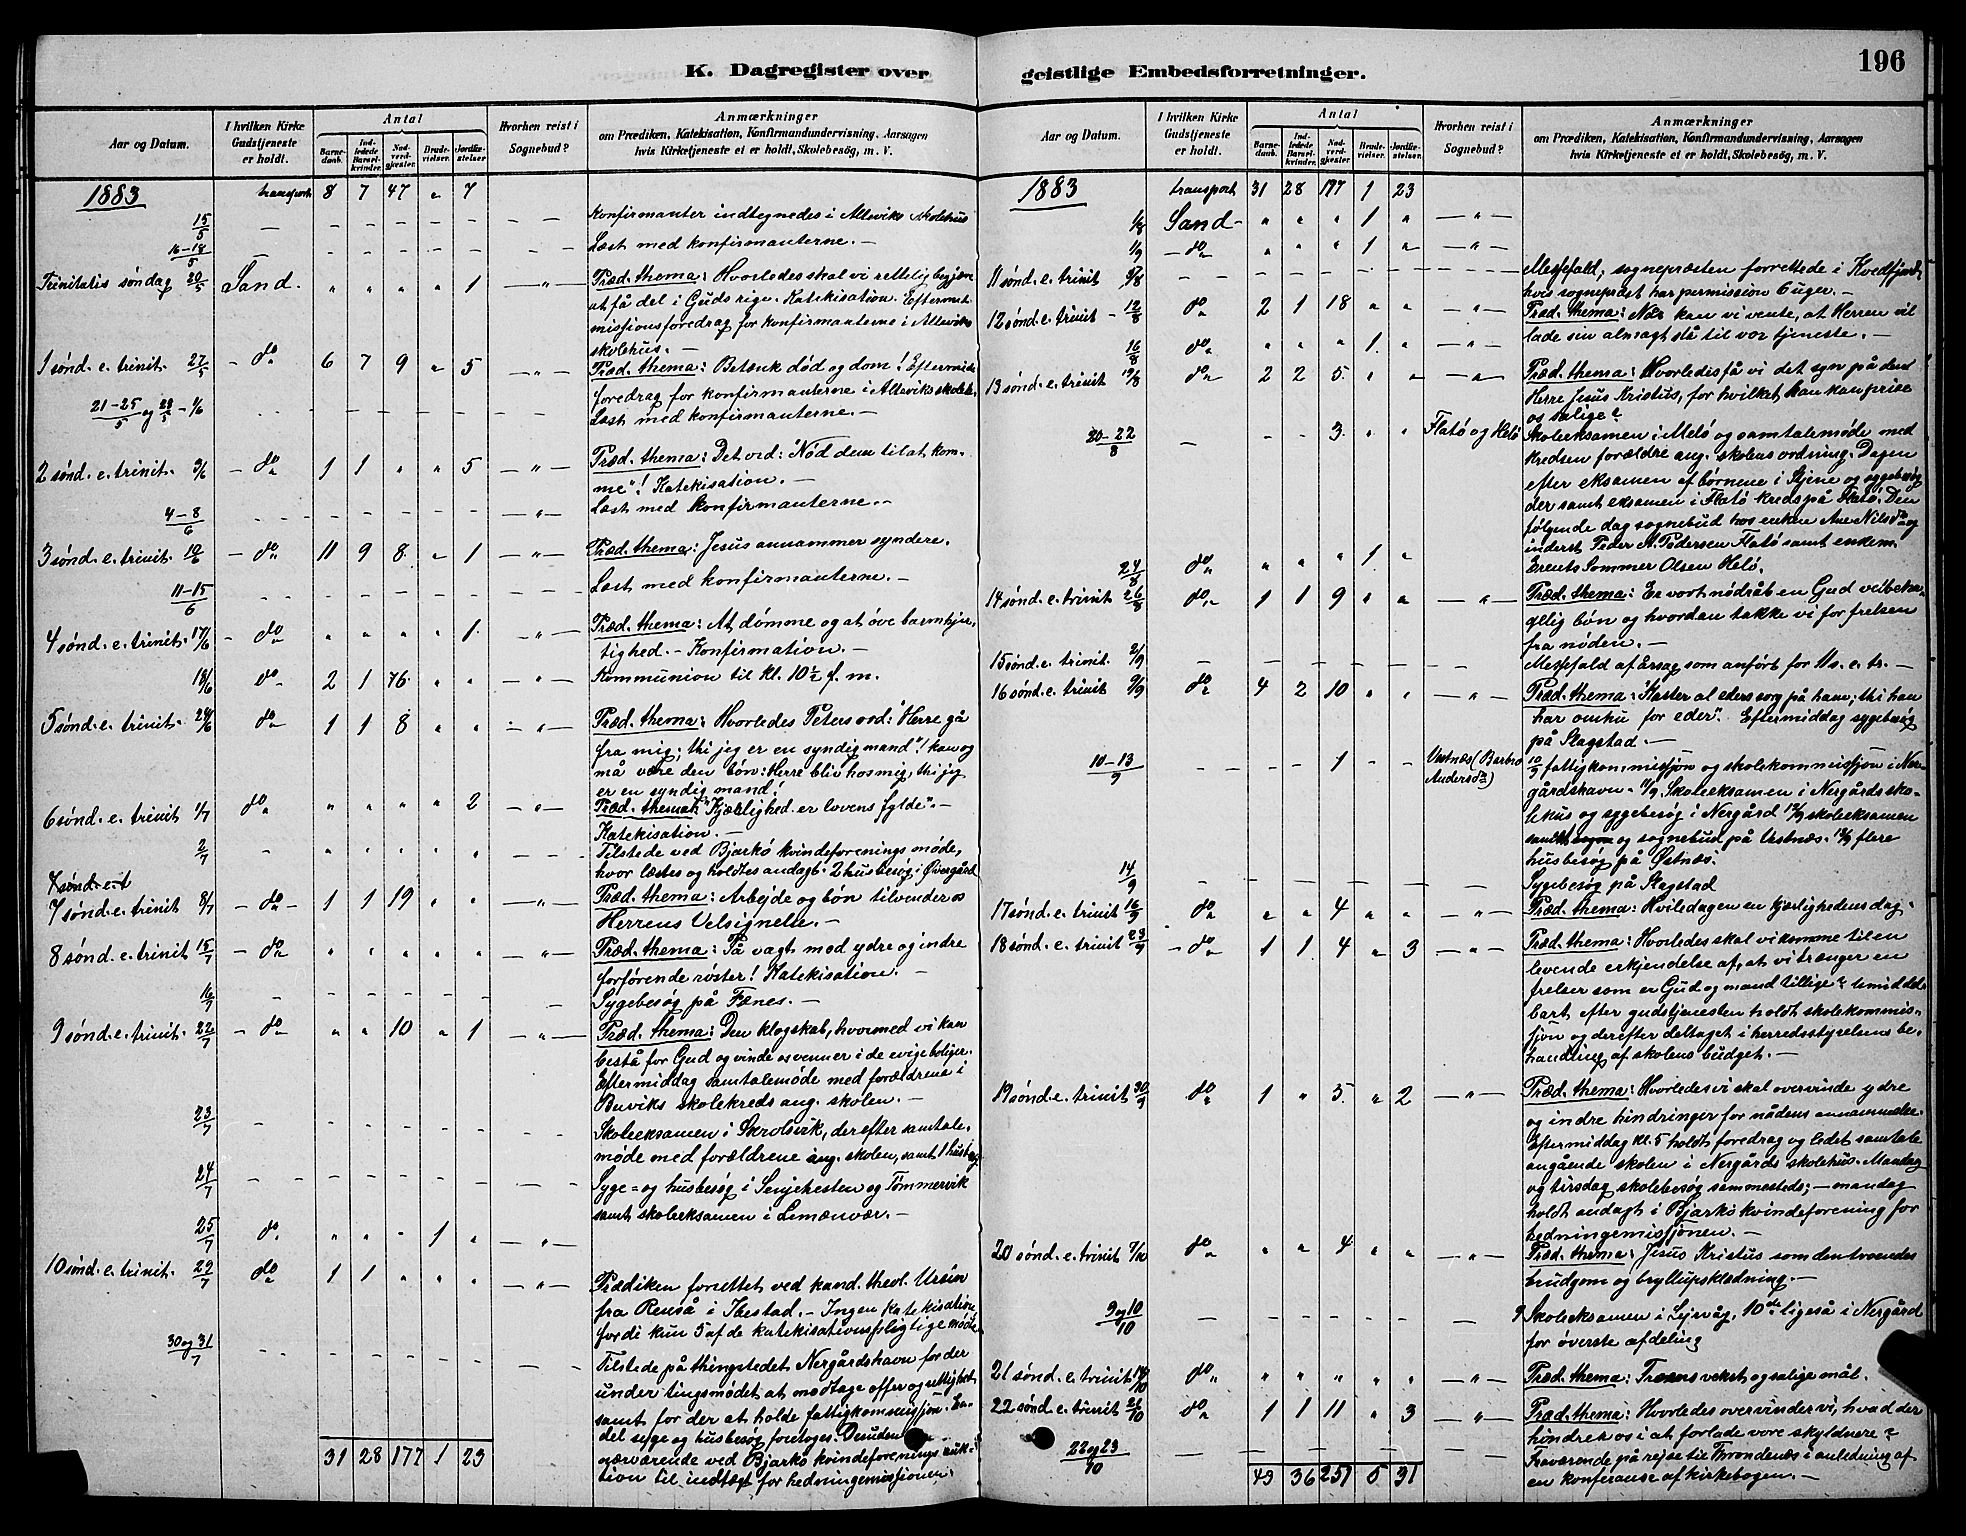 K. Dagregister over
Aar og Datum.
I hvilken Kirke Gudstjeneste er holdt.
Antal
Barnedaab.
Indledede Barselkvinder.
Nadverdgjester.
Brudevielser.
Jordfæstelser.
Hvorhen reist i Sognebud?
Anmærkninger
om Prædiken, Katekisation, Konfirmandundervisning, Aarsagen
hvis Kirketjeneste ei er holdt, Skolebesøg, m. V.
1883 transport 8 7 47 " 7
15/5 konfirmanter indtegnedes i Allsviks skolehus
16-18/5 Læst med konfirmanterne. -
Trinitatis søndag 20/5 Sand. " " " " 1 -"- Præd. thema: Hvorledes skal vi rettelig begjære
at få del i Guds rige. Katekisation. Efterm.
missionsforedrag for konfirmanterne i Allsviks
skolehus. -
1 sønd. e. trinit. 27/5 - do 6 7 9 " 5 -"- Præd. thema: Betænk død og dom! Efterm.
foredrag for konfirmanterne i Allsviks skoleh.
21-25/5 og 28/5 - 1/6 Læst med konfirmanterne. -
2 sønd. e. trinit. 3/6 - do 1 1 " " 5 -"- Præd. thema: Det ord: "Nød dem til at kom-
me"! Katekisation. -
4-8/6 -"- Læst med konfirmanterne. -
3 sønd. e. trinit. 10/6 - do 11 9 8 " 1 -"- Præd. thema: Jesus annammer syndere.
11-15/6 Læst med konfirmanterne. -
4 sønd. e. trinit. 17/6 - do " " " " 1 -"- Præd. thema: At dømme og at öve barmhjer-
tighed. - Konfirmation. -
18/6 do 2 1 76 " " -"- Kommunion til kl. 10½ f. m.
5 sønd. e. trinit. 24/6 do 1 1 8 " " -"- Præd. thema: Hvorledes Peters ord: "Herre gå
fra mig; thi jeg er en syndig mand"! kan og
må være den bøn: Herre bliv hos mig, thi jeg
er en syndig mand!
6 sønd. e. trinit 1/7 do " " " " 2 -"- Præd. thema: "Kjærlighed er lovens fylde". -
Katekisation. -
2/7 Tilstede ved Bjarkö kvindeforenings møde,
hvor læstes og holdtes andagt. 2 husbesøg i Øvergård
7 sønd. e. t
7 sønd. e. trinit 8/7 - do - 1 1 19 " " -"- Præd. thema: Arbejde og bøn tilvender os
Herrens Velsignelse. -
8 sønd. e. trinit 15/7 - do " " " " " -"- Præd. thema: På vagt mod ydre og indre
forförende röster! Katekisation. -
16/7 Sygebesøg på Fænes. -
9 sønd. e. trinit. 22/7 - do " " 10 " 1 -"- Præd. thema: Den klogskab, hvormed vi kan
bestå for Gud og vinde os venner i de evige boliger.
Eftermiddag samtalemøde med forældrene i
Buviks skolekreds ang. skolen. -
23/7 Skoleeksamen i Skrolsvik, derefter samtale-
møde med forældrene ang. skolen, samt 1 husbesøg
24/7 Syge- og husbesøg i Senjehesten og Tømmervik
samt skoleeksamen i Lemænvær. -
25/7 do " " - 1 " -"-
10 sønd. e. trinit. 29/7 do 1 1 " " " -"- Prædiken forrettet ved kand. theol. Ursin
fra Renså i Ibestad. - Ingen katekisation,
fordi kun 5 af de katekisationspligtige mødte
30 og 31/7 Tilstede på thingstedet Nergårdshavn for der
under tingsmødet at modtage offer og rettighed
samt for der at holde fattigkommissjon. En-
del syge og husbesøg foretoges. Desuden
nærværende ved Bjarkö kvindeforenings auk-
tion til indtægt for hedningemissjonen.
31 28 177 1 23
geistlige Embedsforretninger.
196
Aar og Datum.
I hvilken Kirke Gudstjeneste er holdt.
Antal
Barnedaab.
Indledede Barselkvinder.
Nadverdgjester.
Brudevielser.
Jordfæstelser.
Hvorhen reist i Sognebud?
Anmærkninger
om Prædiken, Katekisation, Konfirmandundervisning, Aarsagen
hvis Kirketjeneste ei er holdt, Skolebesøg, m. V.
1883 transport 31 28 177 1 23
1/8 Sand - " " " 1 " -"-
- do " " " 1 " -"-
11 sønd. e. trinit 5/8 Messefald; sognepræsten forrettede i Kvedfjord,
hvis sognepræst har permission 6 uger. -
12 sønd. e. trinit - 12/8 do 2 1 18 " " -"- Præd. thema: Når kan vi vente, at Herren vil
lade sin almagt stå til vor tjeneste. -
16/8 do " " " 1 " -"-
13 sønd. e. trinit 19/8 do 2 2 5 " " -"- Præd. thema: Hvorledes få vi det syn på den
Herre Jesus Kristus, for hvilket han kan prise
os salige?
20-22/8 3 " " Flatö og Helö Skoleeksamen i Melö og samtalemøde med
kredsen forældre ang. skolens ordning. Dagen
efter eksamen af börnene i Stjene og sygebesøg
der samt eksamen i Flatö kreds på Flatö. Den
følgende dag sognebud hos enken Ane Nilsda. og
inderst Peder A. Pedersen Flatö samt enkem.
24/8 do " " " 1 " Erents Sommer Olsen Helö.
14 sønd. e. trinit 26/8 do 1 1 9 " " -"- Præd. thema: Er vort nödråb en Gud velbeha-
gelig bön og hvordan takke vi for frelsen
fra nöden. -
15 sønd. e. trinit. 2/9 Messefald af årsag som anført for 11 s. e. tr. -
16 sønd. e. trinit 9/9 do 4 2 10 " " -"- Præd. thema: "Kaster al eders sorg på ham; thi han
har omhu for eder". Eftermiddag sygebesøg
på Slagstad. -
10-13/9 1 Vestnæs (Barbro Andersda) 10/9 fattigkommissjon og skolekommissjon i Ner-
gårdshavn. 11/9 Skoleeksamen i Nergårds sko-
lehus og sygebesøg i Nergård 12/9 skoleeksamen
og sognebud på Vestnæs. 13/9 flere
husbesøg på Østnæs.
14/9 Sygebesøg på Slagstad
17 sønd. e. trinit 16/9 do " " 4 " " -"- Præd. thema: Hviledagen en kjærlighedens dag.
18 sønd. e. trinit 23/9 - do 1 1 4 " 3 -"- Præd. thema: Hvorledes skal vi komme til en
levende erkjendelse af, at vi trænger en
frelser som er Gud og mand tillige? Umiddel-
bart efter gudstjenesten holdt skolekommis-
sjon og derefter deltaget i herredsstyrelsens be-
handling af skolens budget. -
19 sønd. e. trinit 30/9 do 1 " 5 " 2 -"- Præd. thema: Hvorledes vi skal overvinde ydre
og indre hindringer for nådens annammelse.
Eftermiddag kl. 5 holdt foredrag og ledet samtale
angående skolen i Nergårds skolehus. Mandag
og tirsdag skolebesøg sammesteds; - mandag
holdt andagt i Bjarkö kvindeforening for
hedningemissjonen. -
20 sønd. e. trinit 7/10 do " " 4 " " -"- Præd. thema: Jesus Kristus som den troendes
brudgom og bryllupsklædning. -
9 og 10/10 9 Skoleeksamen i Lejvåg, 10de ligeså i Nergård
for överste afdeling
21 sønd. e. trinit 14/10 do " " " " " -"- Præd. thema: Troens vekst og salige mål.
22 sønd. e. trinit 21/10 do 1 1 11 " 3 -"- Præd. thema: Hvorledes overvinder vi, hvad der
hindrer os i at forlade vore skyldnere?
22 og 23/10 Fraværende på rejse til Throndenæs i anledning af
en konferanse af kirkebogen. -
43 36 257 5 31